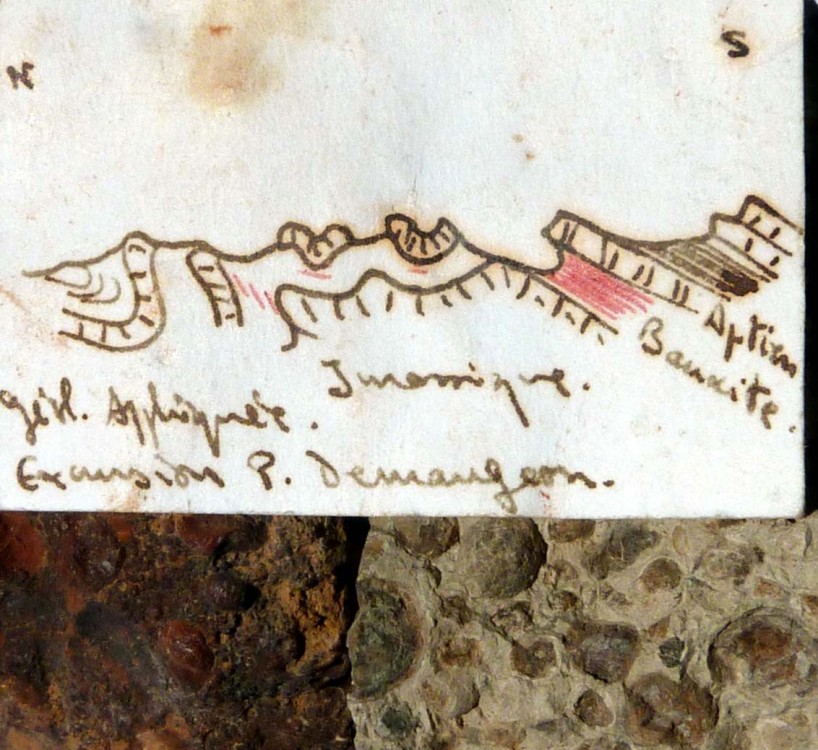 N
S
Aptien
Bauxite.
Jurassique.
Géol. Appliquée.
Excursion P. Demangeon.